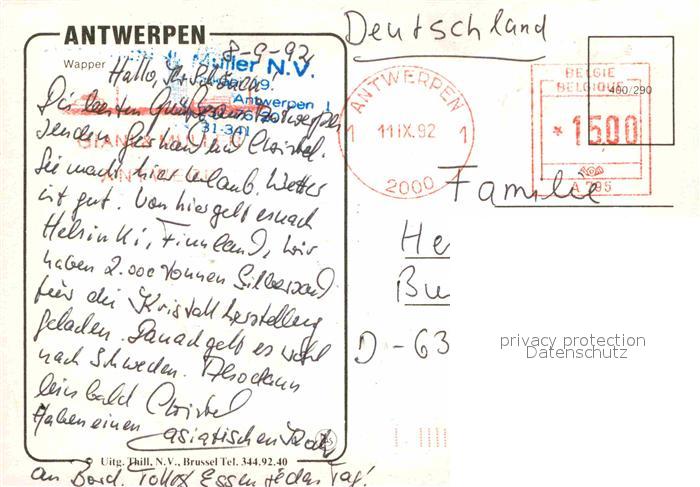 ANTWERPEN
Wapper
8-9-92
Deutschland
Müller N.V.
Antwerpen 1
31-341
Hallo, Ihr
Die besten Grüße aus Antwerpen
senden Gerhard und Christel.
Sie macht hier Urlaub. Wetter
ist gut. Von hier geht es nach
Helsinki, Finnland, wir
haben 2.000 Tonnen Silbersand
für die Kristallherstellung
geladen. Danach geht es wohl
nach Schweden. Also dann
bis bald Christel
Haben einen asiatischen Koch
an Bord. Tolles Essen jeden Tag!
© Uitg. Thill, N.V., Brussel Tel. 344.92.40
ANTWERPEN
1 11 IX. 92 1
2000
BELGIE
BELGIQUE
400/290
* 1500
A 795
Familie
He
Bu
D - 63
privacy protection
Datenschutz